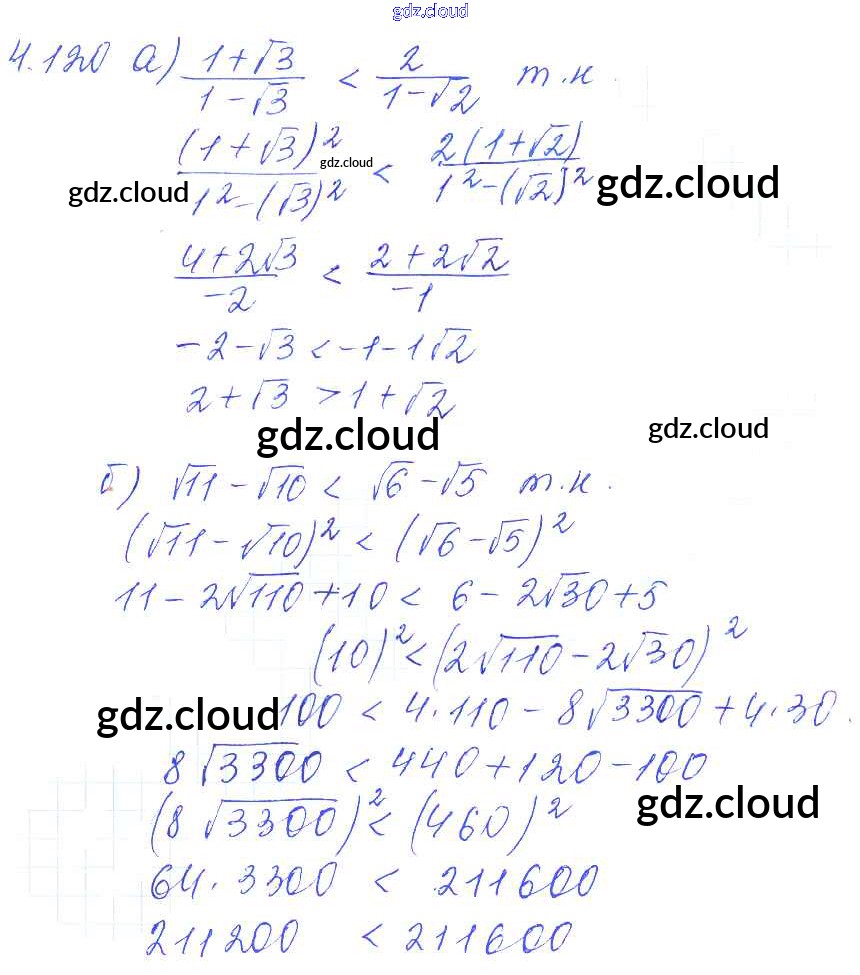 gdz.cloud
4.120 а) (1+√3)/(1-√3) < 2/(1-√2) т.к.
(1+√3)²/(1²-(√3)²) < 2(1+√2)/(1²-(√2)²)
gdz.cloud gdz.cloud gdz.cloud
(4+2√3)/(-2) < (2+2√2)/(-1)
-2-√3 < -1-1√2
2+√3 > 1+√2
gdz.cloud gdz.cloud
б) √11-√10 < √6-√5 т.к.
(√11-√10)² < (√6-√5)²
11-2√110+10 < 6-2√30+5
(10)² < (2√110-2√30)²
gdz.cloud 100 < 4·110-8√3300+4·30.
8√3300 < 440+120-100
(8√3300)² < (460)² gdz.cloud
64·3300 < 211600
211200 < 211600